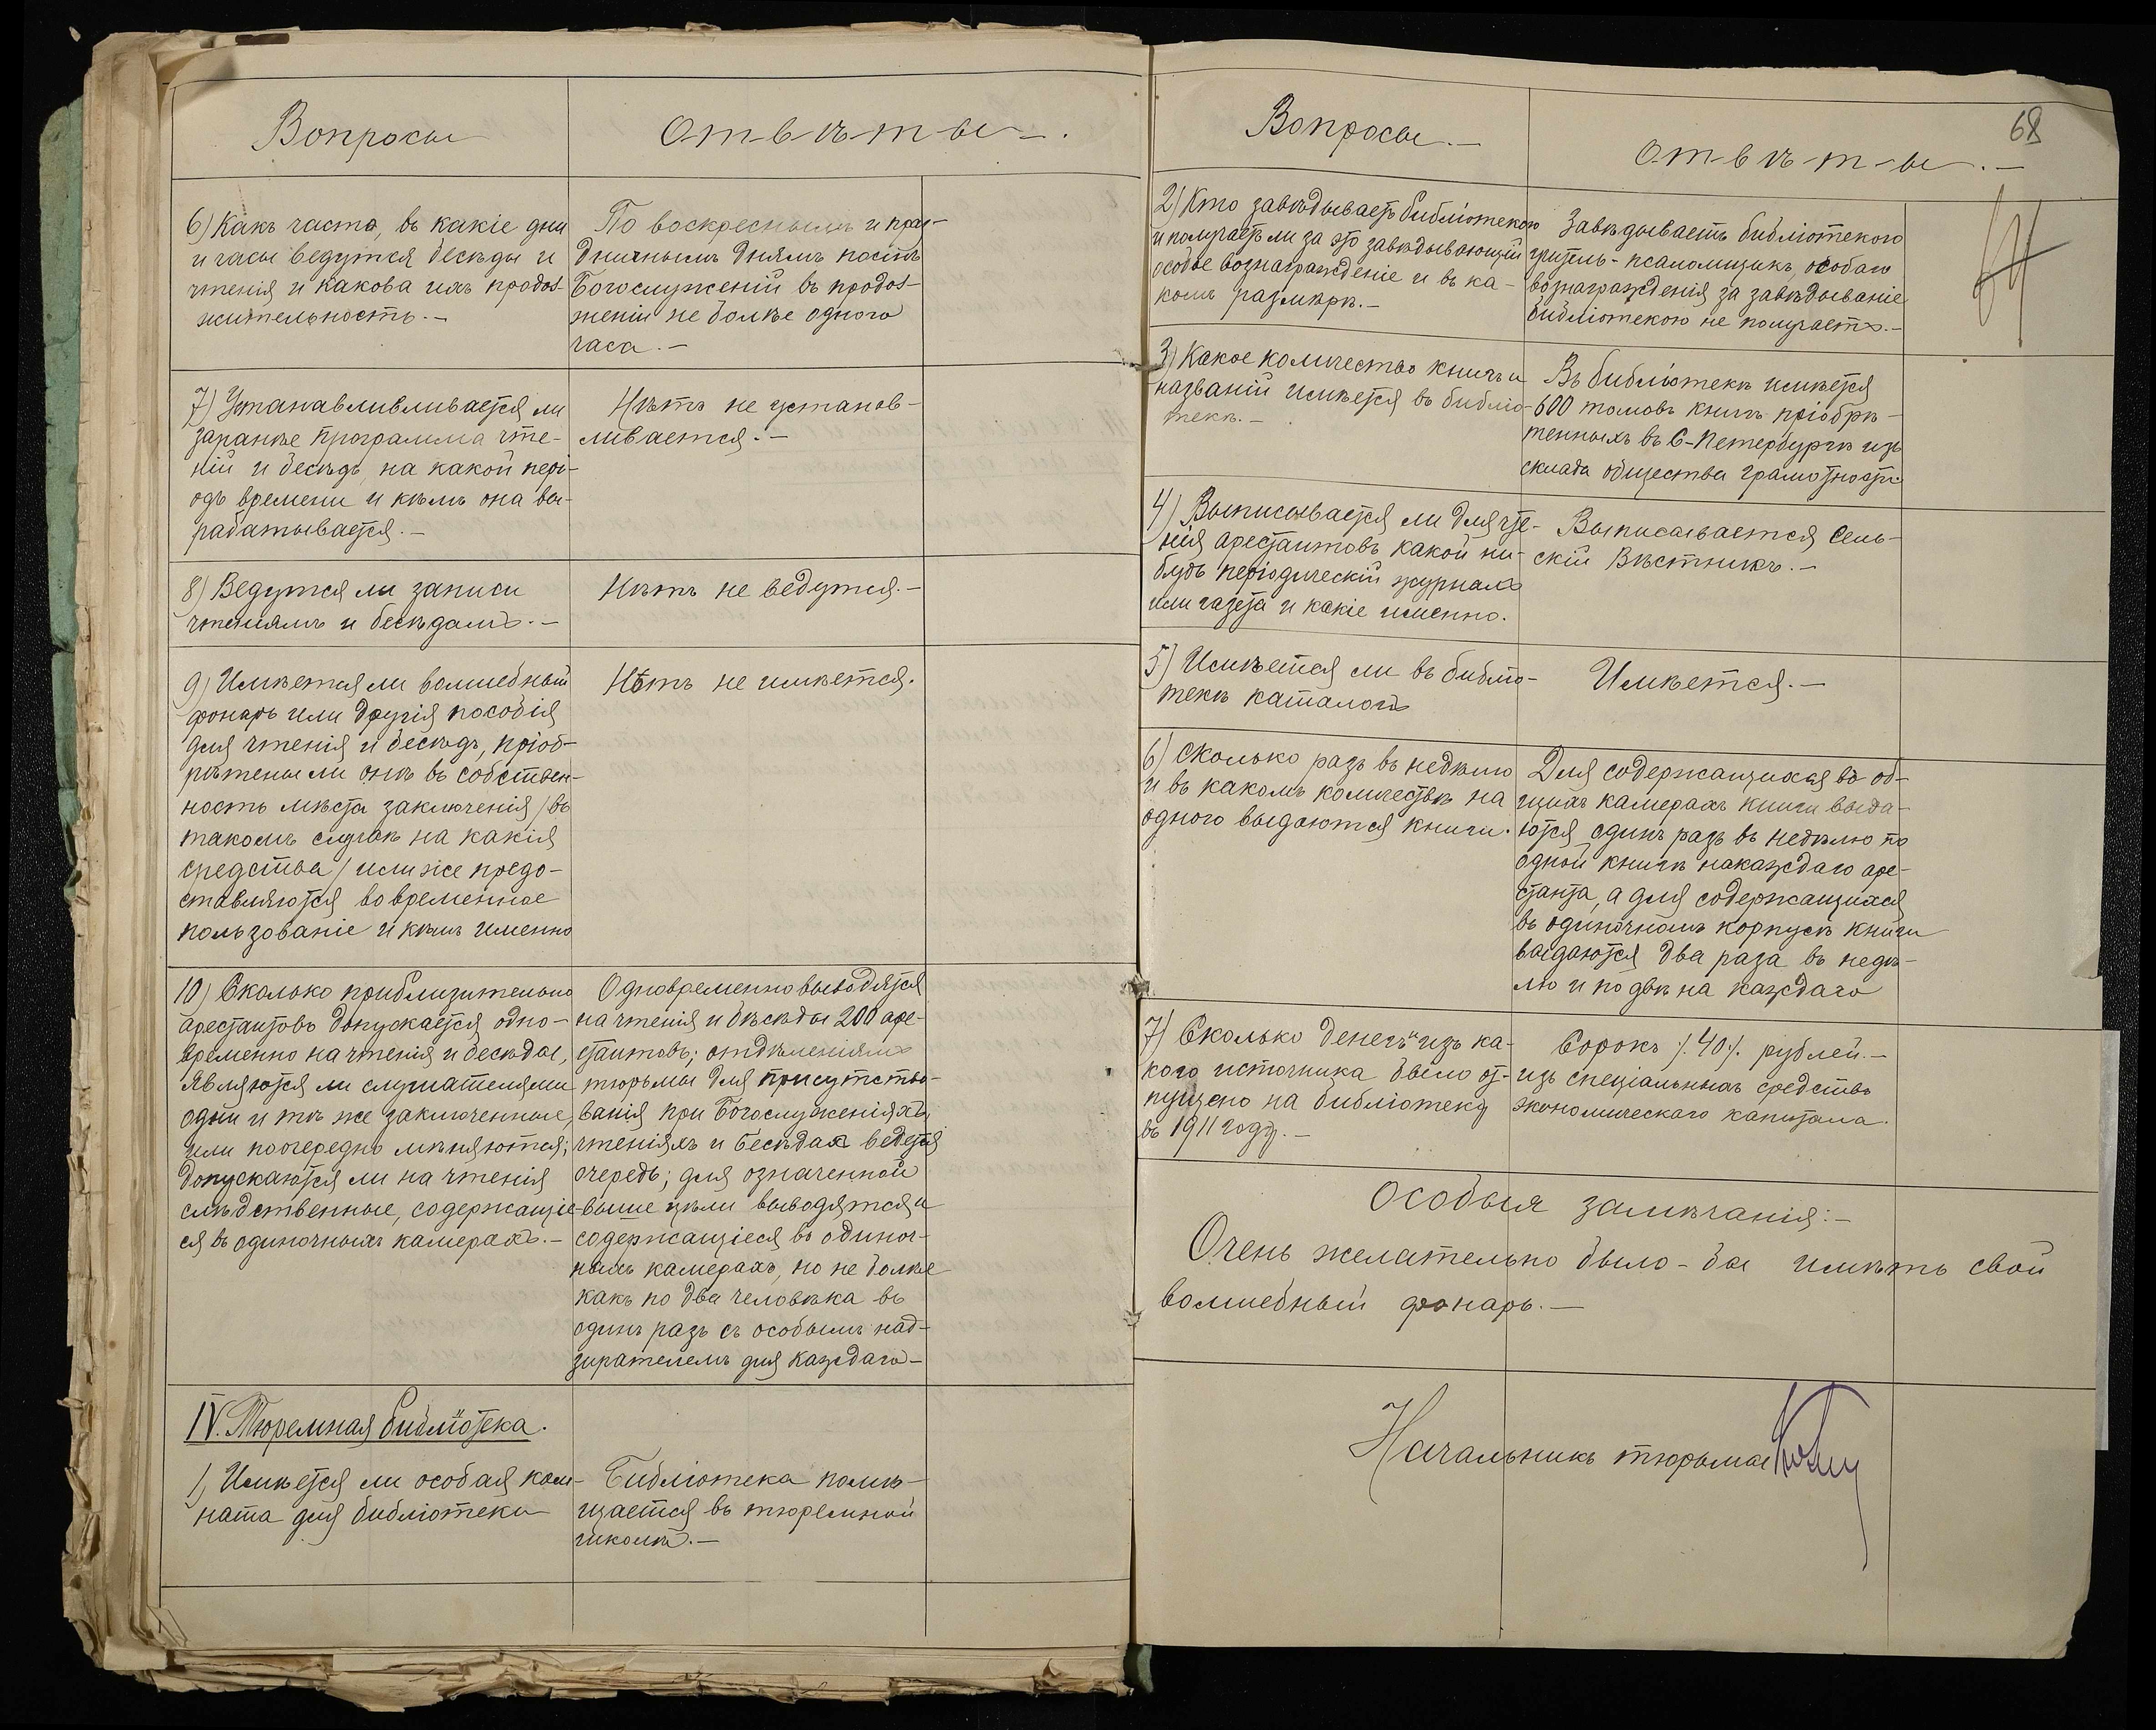 Вопросы
Отвѣты.
6) Какъ часто, въ какіе дни
и часы ведутся бесѣды и
чтенія и какова ихъ продол-
жительность.—
По воскреснымъ и праз-
дничнымъ днямъ послѣ
Богослуженій въ продол-
женіи не болѣе одного
часа.—
7) Устанавливливается ли
заранѣе программа чте-
ній и бесѣдъ, на какой пері-
одъ времени и кѣмъ она вы-
рабатывается.—
Нѣтъ не устанав-
ливается.—
8) Ведутся ли записи
чтеніямъ и бесѣдамъ.—
Нѣтъ не ведутся.—
9) Имѣется ли волшебный
фонарь или другія пособія
для чтенія и бесѣдъ, пріоб-
рѣтены ли онѣ въ собствен-
ность мѣста заключенія /въ
такомъ случаѣ на какія
средства/ или же предо-
ставляются во временное
пользованіе и кѣмъ именно
Нѣтъ не имѣется.
10) Сколько приблизительно
арестантовъ допускается одно-
временно на чтенія и бесѣды,
являются ли слушателями
одни и тѣ же заключенные,
или поочередно мѣняются;
допускаются ли на чтенія
слѣдственные, содержащіе-
ся въ одиночныхъ камерахъ.—
Одновременно выводятся
на чтенія и бѣсѣды 200 аре-
стантовъ; отдѣленіямъ
тюрьмы для присутство-
ванія при Богослуженіяхъ,
чтеніяхъ и бесѣдахъ ведется
очередь; для означенной
выше цѣли выводятся и
содержащіеся въ одиноч-
ныхъ камерахъ, но не болѣе
какъ по два человѣка въ
одинъ разъ съ особымъ над-
зирателемъ для каждаго—
IV. Тюремная библіотека.
1) Имѣется ли особая ком-
ната для библіотеки
Библіотека помѣ-
щается въ тюремной
школѣ.—
68
Вопросы.—
Отвѣты.—
2) Кто завѣдываетъ библіотекою
и получаетъ ли за это завѣдывающій
особое вознагражденіе и въ ка-
комъ размѣрѣ.—
Завѣдываетъ библіотекого
учитель-псаломщикъ, особаго
вознагражденія за завѣдываніе
библіотекою не получаетъ.—
3) Какое количество книгъ и
названій имѣется въ библіо-
текѣ.—
Въ библіотекѣ имѣется
600 томовъ книгъ пріобрѣ-
тенныхъ въ С-Петербургѣ изъ
склада общества грамотности
4) Выписывается ли для чте-
нія арестантовъ какой ни-
будь періодическій журналъ
или газета и какіе именно.
Выписывается Сель-
скій Вѣстникъ.—
5) Имѣется ли въ библіо-
текѣ каталогъ
Имѣется.—
6) Сколько разъ въ недѣлю
и въ какомъ количествѣ на
одного выдаются книги.
Для содержащихся въ об-
щихъ камерахъ книги выда-
ются одинъ разъ въ недѣлю по
одной книгѣ на каждаго аре-
станта, а для содержащихся
въ одиночномъ корпусѣ книги
выдаются два раза въ недѣ-
лю и по двѣ на каждаго
7) Сколько денегъ и изъ ка-
кого источника было от-
пущено на библіотеку
въ 1911 году.—
Сорокъ /40/ рублей.—
изъ спеціальныхъ средствъ
экономическаго капитала.
Особыя замѣчанія:—
Очень желательно было-бы имѣть свой
волшебный фонарь.—
Начальникъ тюрьмы